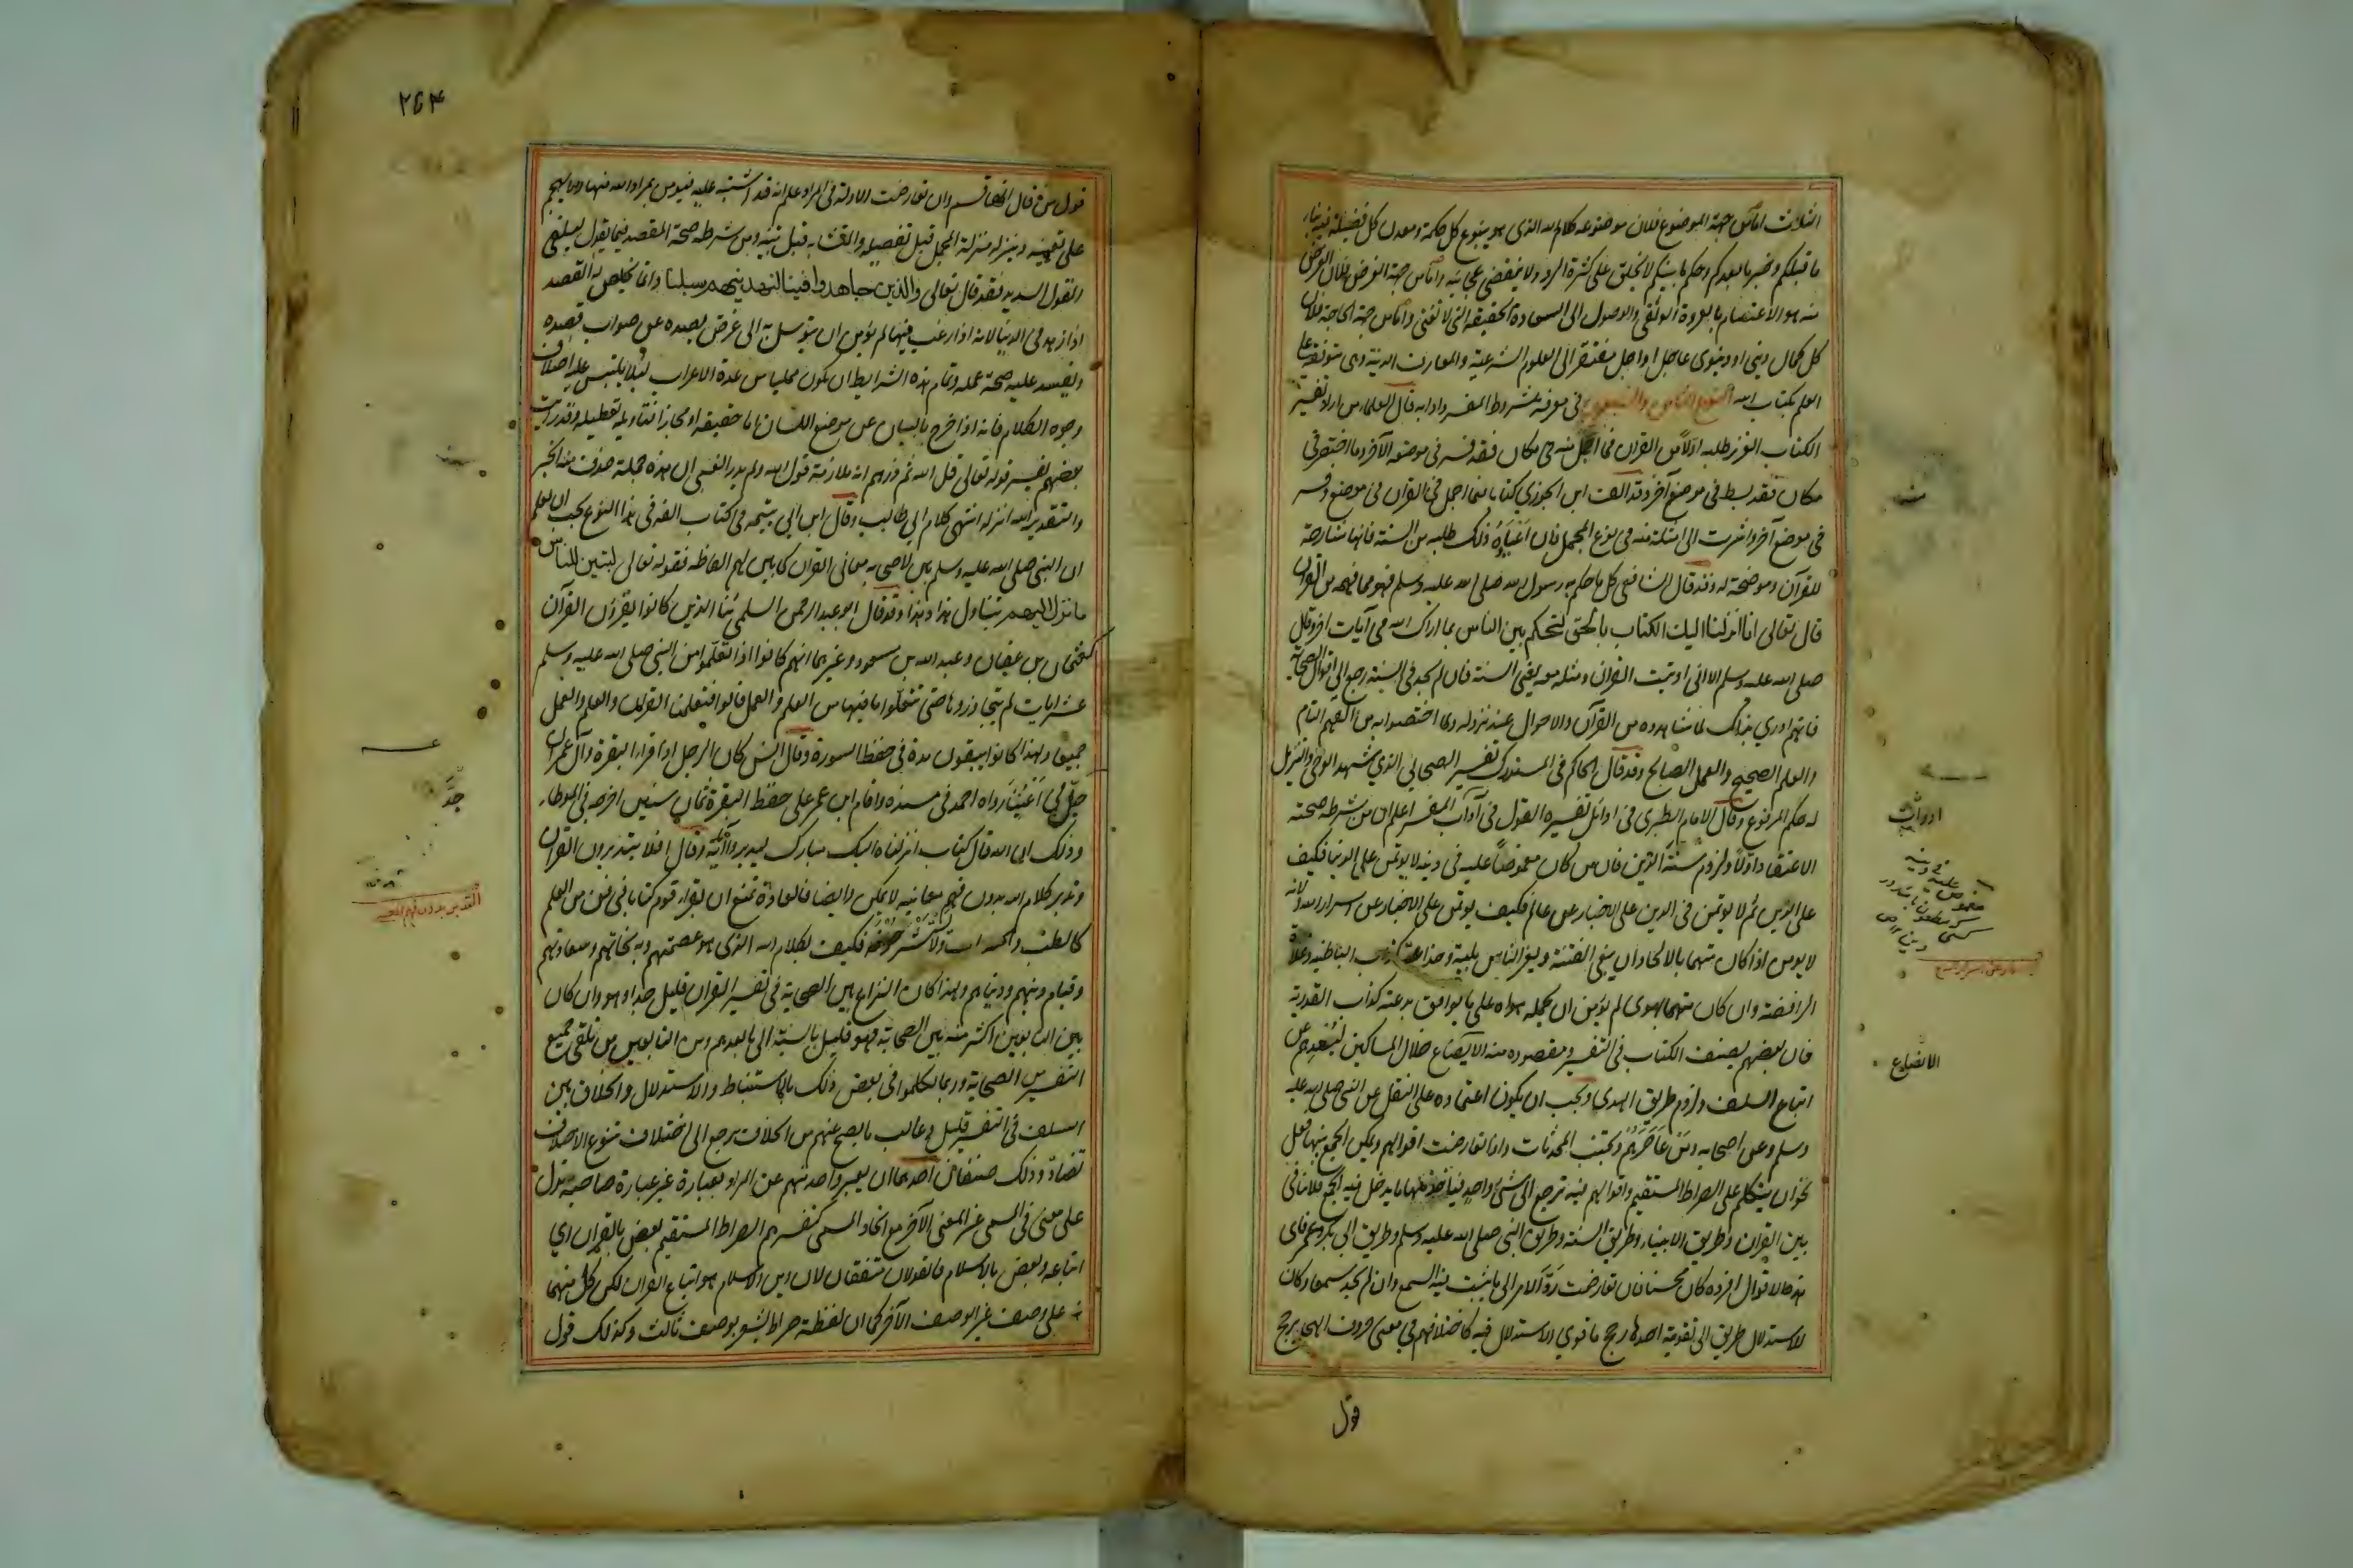 الثلاث اما من جهة الموضوع فلان موضوعه كلام الله الذى هو ينبوع كل حكمة ومعدن كل فضيلة فيه نبأ
ما قبلكم وخبر ما بعدكم وحكم ما بينكم لا يخلق على كثرة الرد ولا تنقضى عجائبه واما من جهة الغرض فلان الغرض
منه هو الاعتصام بالعروة الوثقى والوصول الى السعادة الحقيقية التى لا تفنى واما من جهة الحاجة فلان
كل كمال دينى او دنيوى عاجل او اجل مفتقر الى العلوم الشرعية والمعارف الدينية وهى متوقفة على
العلم بكتاب الله النوع الثامن والسبعون فى معرفة شروط المفسر وادابه قال العلماء من اراد تفسير
الكتاب العزيز طلبه اولا من القران فما اجمل منه فى مكان فقد فسر فى موضع الآخر وما اختصر فى
مكان فقد بسط فى موضع آخر وقد الف ابن الجوزي كتابا فيما اجمل فى القران فى موضع وفسر
فى موضع آخر واشرت الى امثلة منه فى نوع المجمل فان اعياه ذلك طلبه من السنة فانها شارحة
للقرآن وموضحة له وقد قال الشافعى كل ما حكم به رسول الله صلى الله عليه وسلم فهو مما فهمه من القران
قال تعالى انا انزلنا اليك الكتاب بالحق لتحكم بين الناس بما اراك الله فى آيات اخر وقال
صلى الله عليه وسلم الا انى اوتيت القران ومثله معه يعنى السنة فان لم يجد فى السنة رجع الى اقوال الصحابة
فانهم ادري بذلك لما شاهدوه من القرآن والاحوال عند نزوله ولما اختصوا به من الفهم التام
والعلم الصحيح والعمل الصالح وقد قال الحاكم فى المستدرك تفسير الصحابي الذي شهد الوحى والتنزيل
له حكم المرفوع وقال الامام الطبرى فى اوائل تفسيره القول فى آداب المفسر اعلم ان من شرطه صحة
الاعتقاد اولا ولزوم سنة الدين فان من كان مغموصا عليه فى دينه لا يؤتمن على الدنيا فكيف
على الدين ثم لا يؤتمن فى الدين على الاخبار عن عالم فكيف يؤتمن على الاخبار عن اسرار الله ولانه
لا يومن اذا كان متهما بالالحاد ان يبغى الفتنة ويغر الناس بليه وخداعه كدأب الباطنية وغلاة
الرافضة وان كان متهما بهوى لم يؤمن ان يحمله هواه على ما يوافق بدعته كدأب القدرية
فان بعضهم يصنف الكتاب فى التفسير ومقصوده منه الايضاع خلال المساكين ليصدهم عن
اتباع السلف ولزوم طريق الهدى ويجب ان يكون اعتماده على النقل عن النبى صلى الله عليه
وسلم وعن اصحابه ومن عاصرهم ويجتنب المحدثات واذا تعارضت اقوالهم وامكن الجمع بينها فعل
نحو ان يتكلم على الصراط المستقيم واقوالهم فيه ترجع الى شئ واحد فيأخذ منها ما يدخل فيه الجمع فلا تنافى
بين القران وطريق الانبياء وطريق السنة وطريق النبى صلى الله عليه وسلم وطريق ابى بكر وعمر فاى
هذه الاقوال افرده كان محسنا فان تعارضت رد الامر الى ما يثبت فيه السمع وان لم يجد سمعا وكان
للاستدلال طريق الى تقوية احدها رجح ما قوي الاستدلال فيه كاختلافهم فى معنى حروف الهجا يرجح
قول
ادوات
الايضاع
٢٥٤
قول من قال انها قسم وان تعارضت الادلة فى المراد علم انه قد اشتبه عليه فيؤمن بمراد الله منها ولا يهجم
على تعيينه وينزله منزلة المجمل قبل تفصيله والمتشابه قبل تبيينه ومن شرطه صحة المقصد فيما يقول ليلقى
التقول السديد فقد قال تعالى والذين جاهدوا فينا لنهدينهم سبلنا وانما يخلص له القصد
اذا زهد فى الدنيا لانه اذا رغب فيها لم يؤمن ان يتوسل به الى غرض يصده عن صواب قصده
ويفسد عليه صحة عمله وتمام هذه الشرايط ان يكون ممليا من عدة الاعراب لئلا يلتبس عليه اختلاف
وجوه الكلام فانه اذا خرج بالبيان عن موضع اللسان اما حقيقة او مجازا فتأويله تعطيله وقد رايت
بعضهم يفسر قوله تعالى قل الله ثم ذرهم انه ملازمة قول الله ولم يدر الغبى ان هذه جملة حذفت منها الخبر
والتقدير الله انزله انتهى كلام ابى طالب وقال ابن ابى تيميه فى كتاب الفه فى هذا النوع يجب ان يعلم
ان النبى صلى الله عليه وسلم بين لاصحابه معانى القران كما بين لهم الفاظه فقوله تعالى لتبين للناس
ما نزل اليهم يتناول هذا وهذا وقد قال ابو عبد الرحمن السلمي ثنا الذين كانوا يقرؤن القرآن
كعثمان بن عفان وعبد الله بن مسعود وغيرهما انهم كانوا اذا تعلموا من النبى صلى الله عليه وسلم
عشر ايات لم يتجاوزوها حتى يتعلموا ما فيها من العلم والعمل قالوا فتعلمنا القران والعلم والعمل
جميعا ولهذا كانوا يبقون مدة فى حفظ السورة وقال انس كان الرجل اذا قرا البقرة وآل عمران
جل فى اعيننا رواه احمد فى مسنده واقام ابن عمر على حفظ البقرة ثمان سنين اخرجه فى الموطا
وذلك ان الله قال كتاب انزلناه اليك مبارك ليدبروا آياته وقال افلا يتدبرون القران
وتدبر كلام الله بدون فهم معانيه لا يمكن وايضا فالعادة تمنع ان يقرا قوم كتابا فى فن من العلم
كالطب والحساب ولا يستشرحونه فكيف بكلام الله الذى هو عصمتهم وبه نجاتهم وسعادتهم
وقيام دينهم ودنياهم ولهذا كان النزاع بين الصحابة فى تفسير القران قليل جدا وهو وان كان
بين التابعين اكثر منه بين الصحابة فهو قليل بالنسبة الى ما بعدهم ومن التابعين من تلقى جميع
التفسير من الصحابة وربما تكلموا فى بعض ذلك بالاستنباط والاستدلال والخلاف بين
السلف فى التفسير قليل وغالب ما يصح عنهم من الخلاف يرجع الى اختلاف تنوع لا اختلاف
تضاد وذلك صنفان احدهما ان يعبر واحد منهم عن المراد بعبارة غير عبارة صاحبه تدل
على معنى فى المسمى غير المعنى الآخر مع اتحاد المسمى كتفسيرهم الصراط المستقيم بعض بالقران اي
اتباعه وبعض بالاسلام فالقولان متفقان لان دين الاسلام هو اتباع القران لكن كل منهما
نبه على وصف غير الوصف الآخر كما ان لفظة صراط يشعر بوصف ثالث وكذلك قول
جد